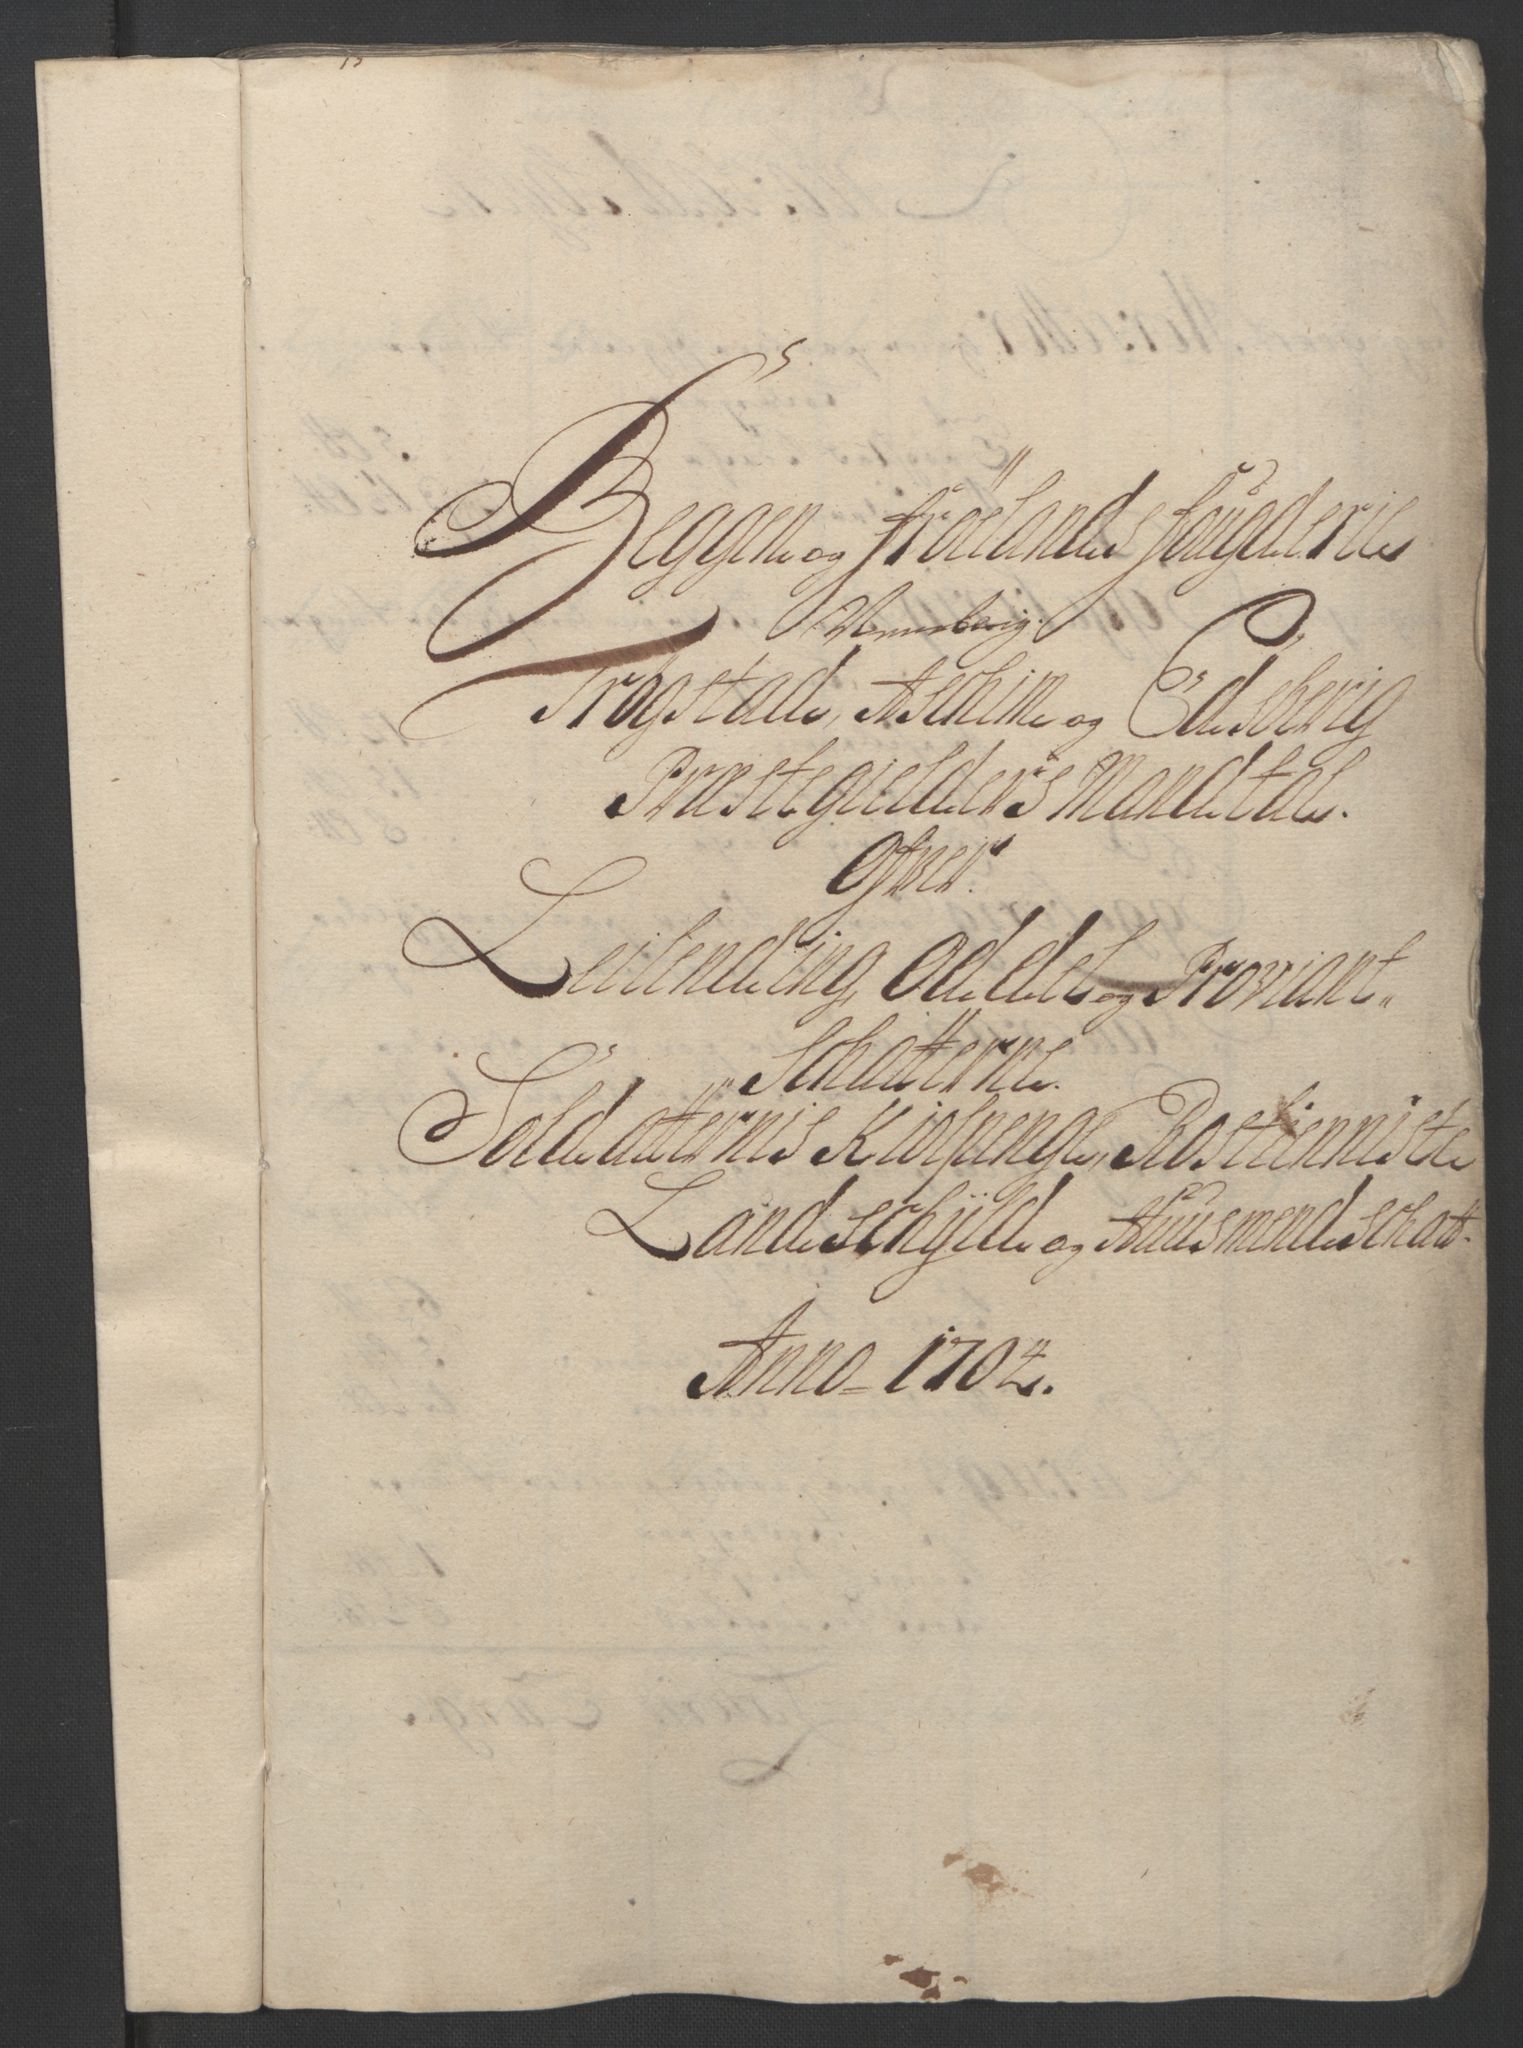 13
Heggen og Fröelands fougderie
Trögstad, Aschim og Edsberig
Præstegielders Mandtal.
Ofver
Leilending, Oddel og Proviant
Schatterne.
Soldatternis Kiolpenge, Rostienniste
Landschyld og Huusmendschatt.
Anno - 1702.